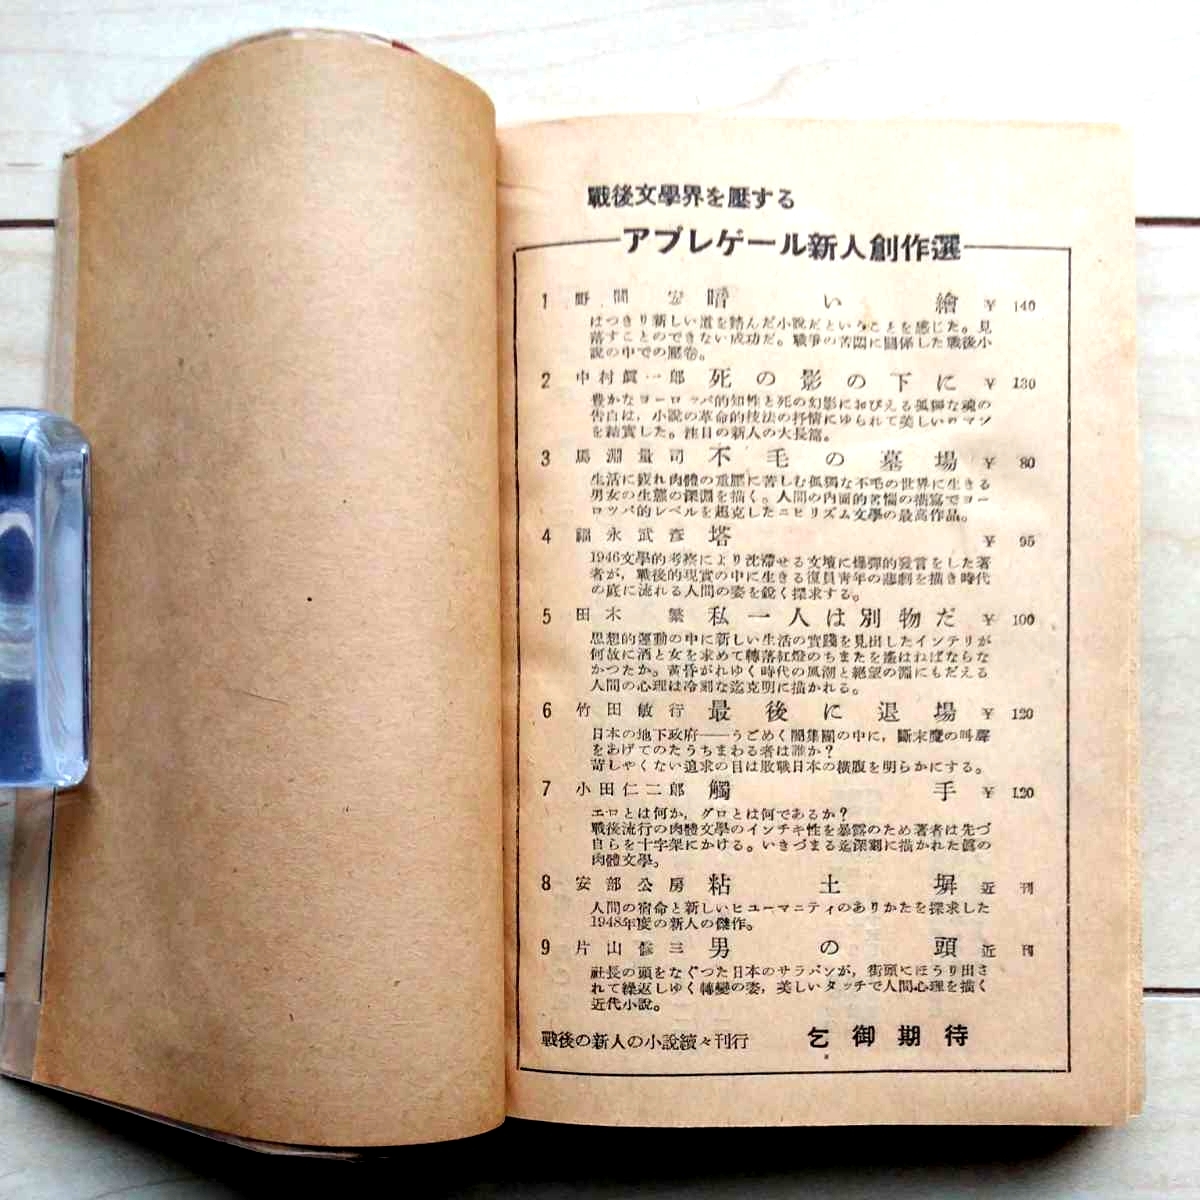 戰後文學界を壓する
アプレゲール新人創作選
1 野間 宏 暗い繪 ¥ 140
はつきり新しい道を踏んだ小說だということを感じた。見
落すことのできない成功だ。戰爭の苦悶に關係した戰後小
說の中での壓卷。
2 中村眞一郎 死の影の下に ¥ 130
豊かなヨーロッパ的知性と死の幻影におびえる孤獨な魂の
告白は，小說の革命的技法の抒情にゆられて美しいロマン
を結實した。注目の新人の大長篇。
3 馬淵量司 不毛の墓場 ¥ 80
生活に疲れ肉體の重壓に苦しむ孤獨な不毛の世界に生きる
男女の生態の深淵を描く。人間の內面的苦惱の描寫でヨー
ロツパ的レベルを超克したニヒリズム文學の最高作品。
4 福永武彦 塔 ¥ 95
1946文學的考察により沈滯せる文壇に爆彈的發言をした著
者が，戰後的現實の中に生きる復員靑年の悲劇を描き時代
の底に流れる人間の姿を銳く探求する。
5 田木 繁 私一人は別物だ ¥ 100
思想的運動の中に新しい生活の實踐を見出したインテリが
何故に酒と女を求めて轉落紅燈のちまたを遙はねばならな
かつたか。黃昏がれゆく時代の風潮と絕望の淵にもだえる
人間の心理は冷嚴な迄克明に描かれる。
6 竹田敏行 最後に退場 ¥ 120
日本の地下政府——うごめく閣集團の中に，斷末魔の叫聲
をあげてのたうちまわる者は誰か？
苛しやくない追求の目は敗戰日本の橫腹を明らかにする。
7 小田仁二郎 觸手 ¥ 120
エロとは何か，グロとは何であるか？
戰後流行の肉體文學のインチキ性を暴露のため著者は先づ
自らを十字架にかける。いきづまる迄深刻に描かれた眞の
肉體文學。
8 安部公房 粘土塀 近刊
人間の宿命と新しいヒユーマニティのありかたを探求した
1948年度の新人の傑作。
9 片山修三 男の頭 近刊
社長の頭をなぐつた日本のサラバンが，街頭にほうり出さ
れて繰返しゆく轉變の姿，美しいタッチで人間心理を描く
近代小說。
戰後の新人の小說續々刊行 乞御期待